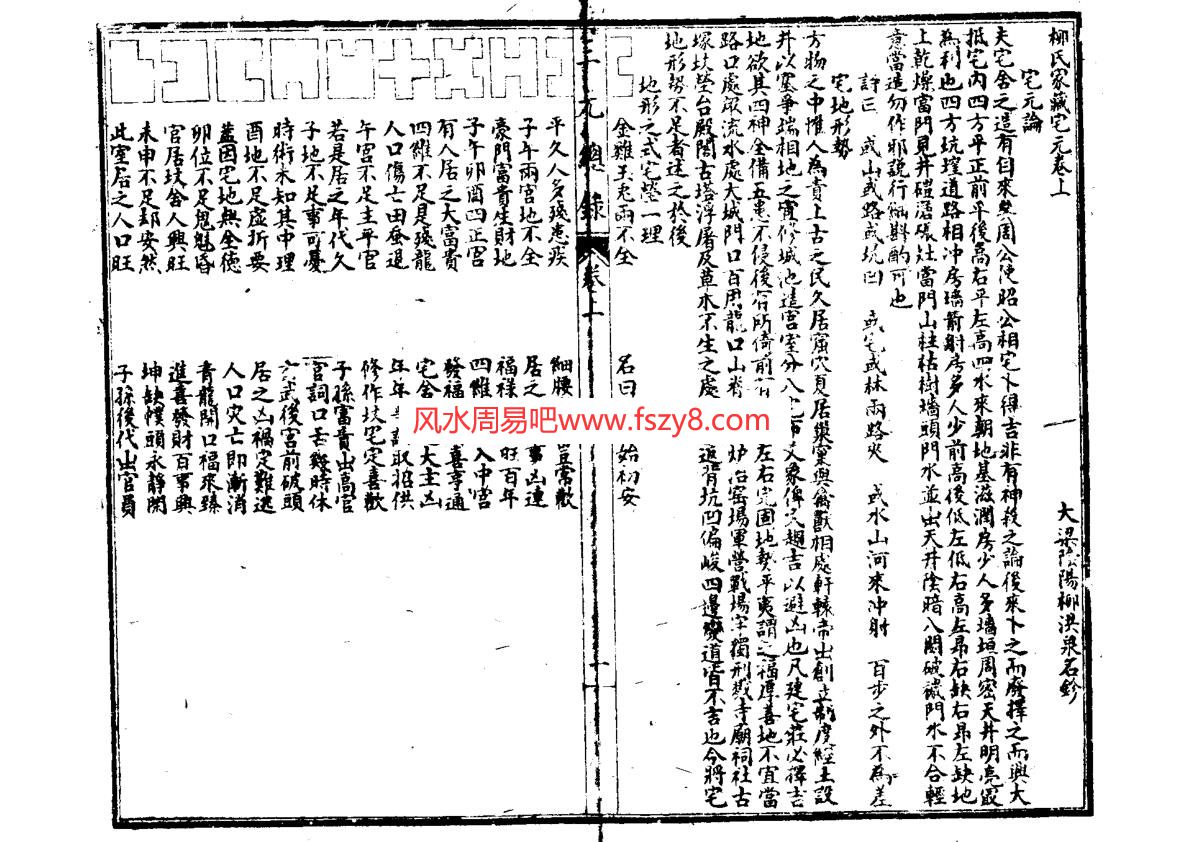 柳氏家藏宅元卷上
大梁陰陽柳洪泉名鈔
宅元論
夫宅舍之造有自來矣周公使昭公相宅卜得吉非有神殺之論後來卜之而廢擇之而興大
抵宅內四方平正前平後高右平左高四水來朝地基滋潤房少人多墻垣周密天井明亮最
為利也四方坑堭道路相冲房墻箭射房多人少前高後低左低右高左昂右缺右昂左缺地
上乾燥當門見井碓磨碾灶當門山柱枯樹墻頭門水並出天井陰暗八關破穢門水不合輕
意當造勿作邪説行斟酌可也
詩曰 或山或路或坑凹 或宅或林兩路夾 或水山河來冲射 百步之外不為差
宅地形勢
方物之中惟人為貴上古之民久居窟穴頁居巢室與禽獸相處軒轅帝出創立制度經土設
井以塞爭端相地之宜修城池造宮室分八宅布文象俾
趨吉以避凶也凡建宅莊必擇吉
地欲其四神全備五患不侵後有所倚前有
左右完固地勢平夷謂之福厚善地不宜當
路口處眾流水處大城門口百用龍口山脊
炉冶窑場軍營戰場牢獨刑獄寺廟祠社古
塚坟瑩台殿閣古塔浮屠及草木不生之處
追背坑凹偏峻四邊変道皆不吉也今將宅
地形势不足者述之於後
地形之式宅瑩一理
金雞玉兎兩不全
名曰
始初安
三元總錄
卷上
一
平久人多殘患疾
細腰
常歡
子午兩宮地不全
居之
事凶連
豪門富貴生財地
福祿
旺百年
子午卯酉四正宮
四維
入中宮
有人居之大富貴
發福
喜亨通
四維不足是殘龍
宅舍
大主凶
人口傷亡田蚕退
年年
取招供
午宮不足主平官
修作坟宅定喜歡
若是居之年代久
子孫富貴出高官
子地不足事可憂
官詞口舌幾時休
時術未知其中理
六武後宮前破頭
酉地不足處折要
居之凶禍定難逃
蓋因宅地無全德
人口灾亡即漸消
卯位不足鬼魅昏
青龍開口福來臻
官居坟舍人興旺
進喜發財百事興
未申不足却安然
坤缺幞頭永靜閑
此室居之人口旺
子孫後代出官員
风水周易吧www.fszy8.com